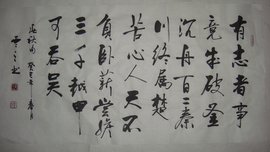 有志者事
竟成破釜
沉舟百二秦
关终属楚
苦心人天不
負卧薪嘗膽
三千越甲
可吞吴
癸巳年春月